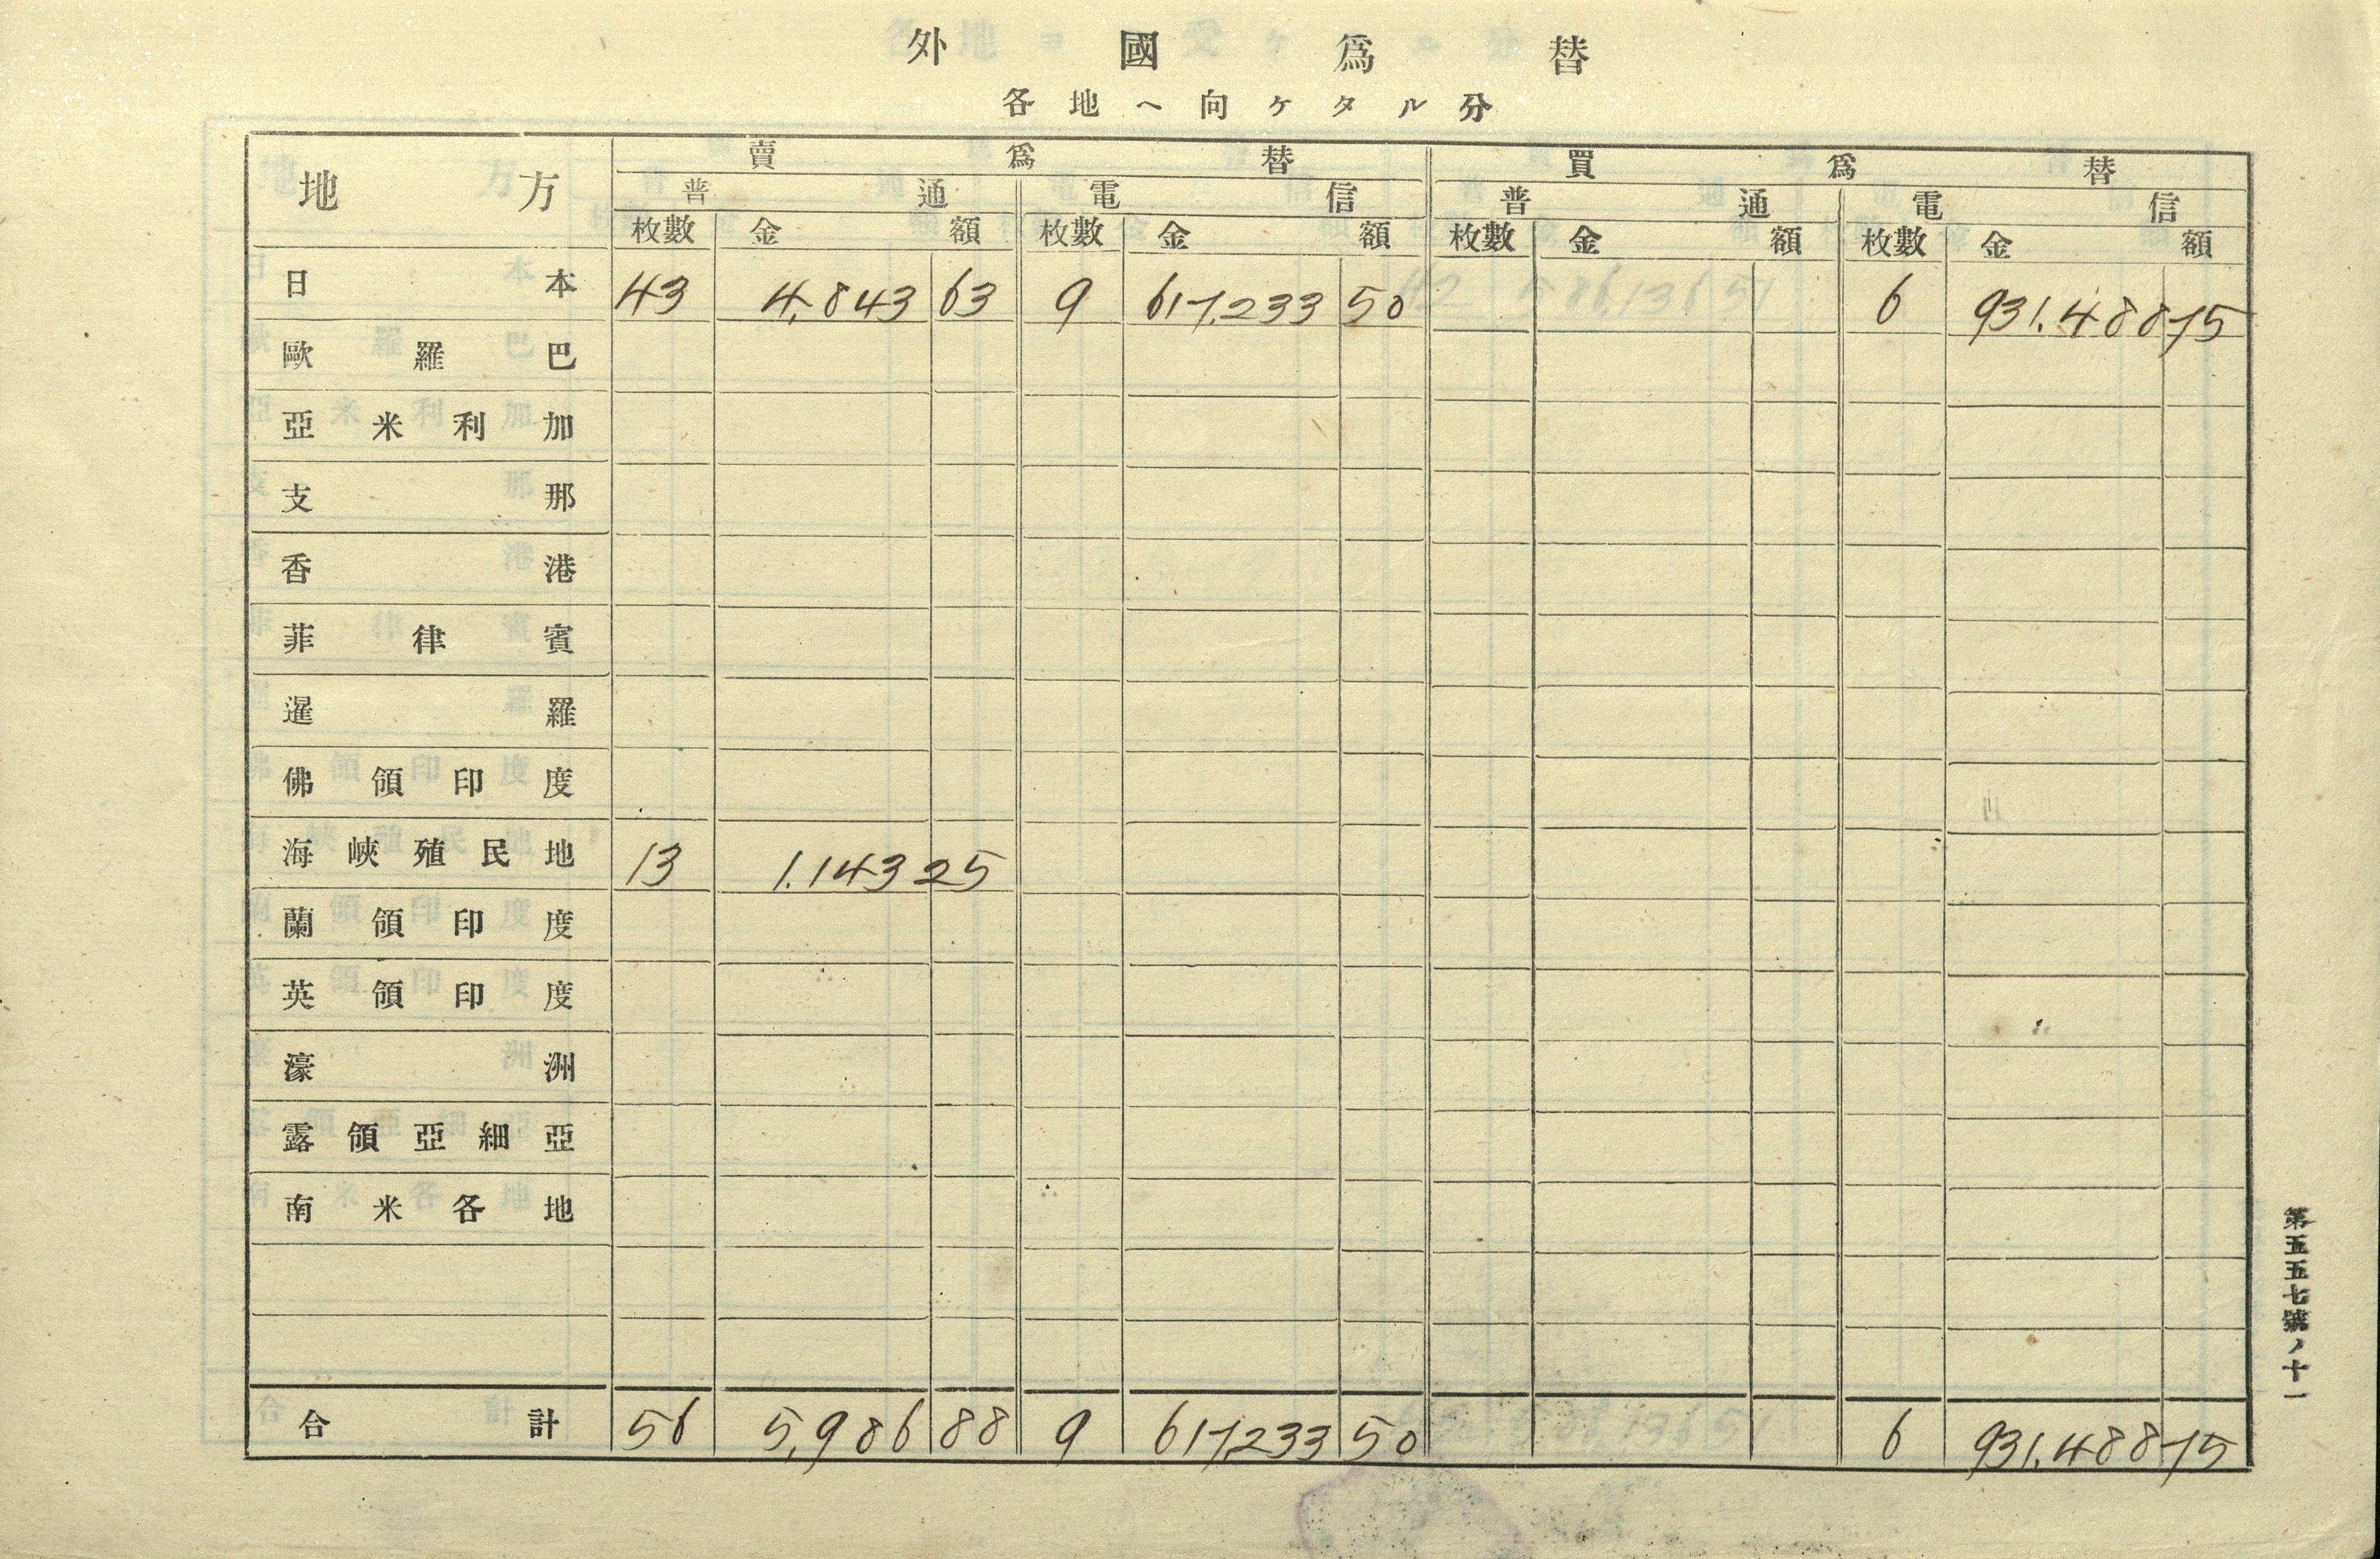 外國爲替
各地ヘ向ケタル分
地方 賣爲替 買爲替
普通 電信 普通 電信
枚數 金額 枚數 金額 枚數 金額 枚數 金額
日本 43 4,843 63 9 617.233 50 6 931.488 75
歐羅巴
亞米利加
支那
香港
菲律賓
暹羅
佛領印度
海峽殖民地 13 1.143 25
蘭領印度
英領印度
濠洲
露領亞細亞
南米各地
合計 56 5,986 88 9 617.233 50 6 931.488 75
第五五七號ノ十一